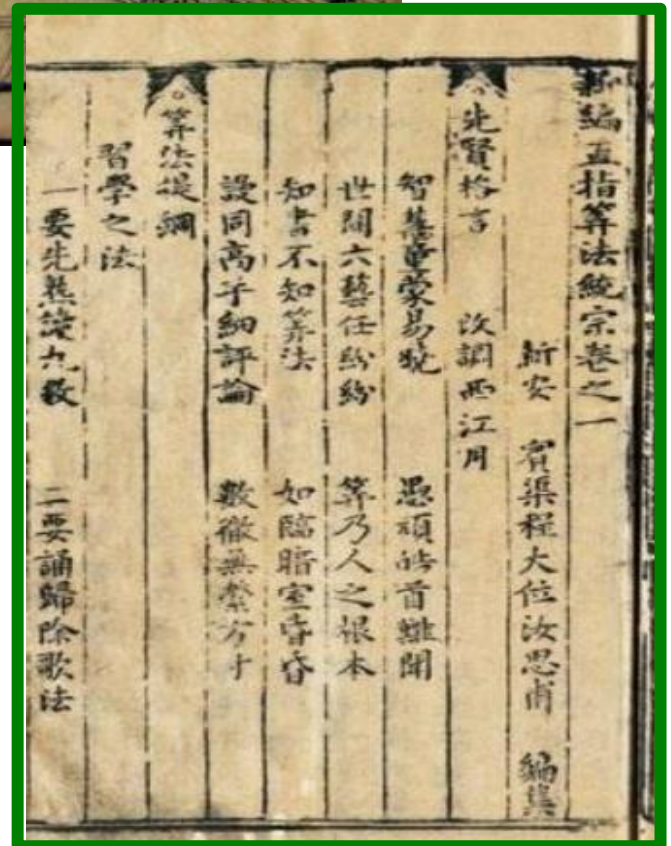 新編直指算法統宗卷之一
新安 賓渠程大位汝思甫 編集
先賢格言 改調西江月
智慧童蒙易曉 愚頑皓首難聞
世間六藝任紛紛 算乃人之根本
知書不知算法 如臨暗室昏昏
謾同高手細評論 數徹無縈方寸
算法提綱
習學之法
一要先熟讀九數 二要誦歸除歌法